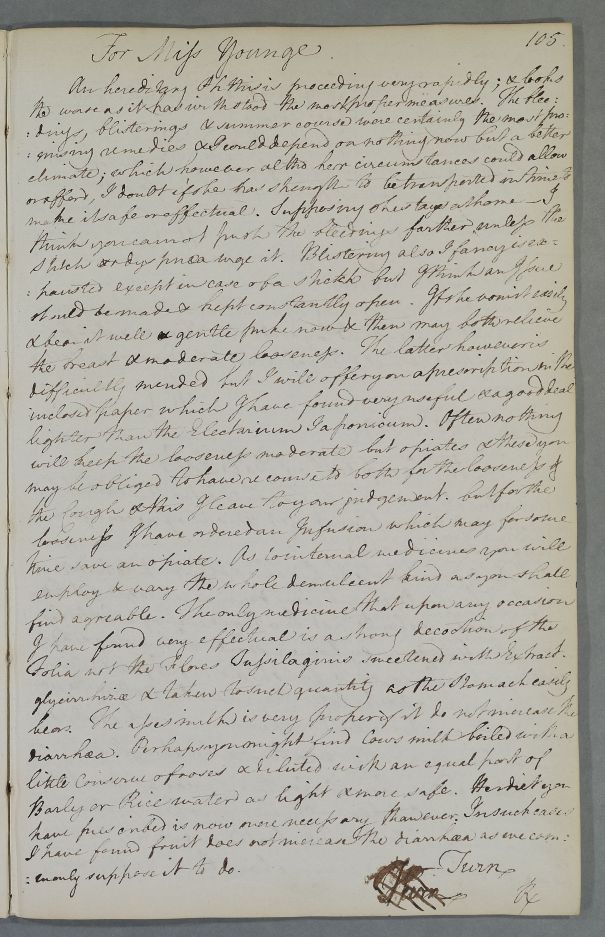 105.
For Miss Younge.
An hereditary Phthisis proceeding very rapidly; & looks
the worse as it has withstood the most proper measures. The blee:
:dings, blisterings & summer course were certainly the most pro:
:mising remedies & I would depend on nothing now but a better
climate; which however altho her circumstances could allow
or afford, I doubt if she has strength to be transported in time to
make it safe or effectual. Supposing she stays at home — I
think you cannot push the bleedings farther unless the
stitch or dyspnœa urge it. Blistering also I fancy is ex:
:hausted except in case of a stitch but I think an Issue
should be made & kept constantly open. If she vomit easily
& bear it well a gentle puke now & then may both relieve
the breast & moderate looseness. The latter however is
difficultly mended but I will offer you a prescription in the
inclosed paper which I have found very useful & a good deal
lighter than the Electarium Japonicum. Often nothing
will keep the looseness moderate but opiates & these you
may be obliged to have recourse to both for the looseness &
the cough & this I leave to your judgement. but for the
looseness I have ordered an Infusion which may for some
time save an opiate. As to internal medicines you will
employ & vary the whole demulcent kind as you shall
find agreable. The only medicine that upon any occasion
I have found very effectual is a strong decoction of the
Folia not the Flores Tussilaginis sweetened with Extract.
glycirrhizæ & taken to such quantity as the Stomach easily
bear. The asses milk is very proper if it do not increase the
diarrhœa. Perhaps you might find Cows milk boiled with a
little Conserve of roses & diluted with an equal part of
Barley or Rice water as light & more safe. Her diet you
have prescribed is now more necessary than ever. In such cases
I have found fruit does not increase the diarrhœa as we com:
:monly suppose it to do.
Turn